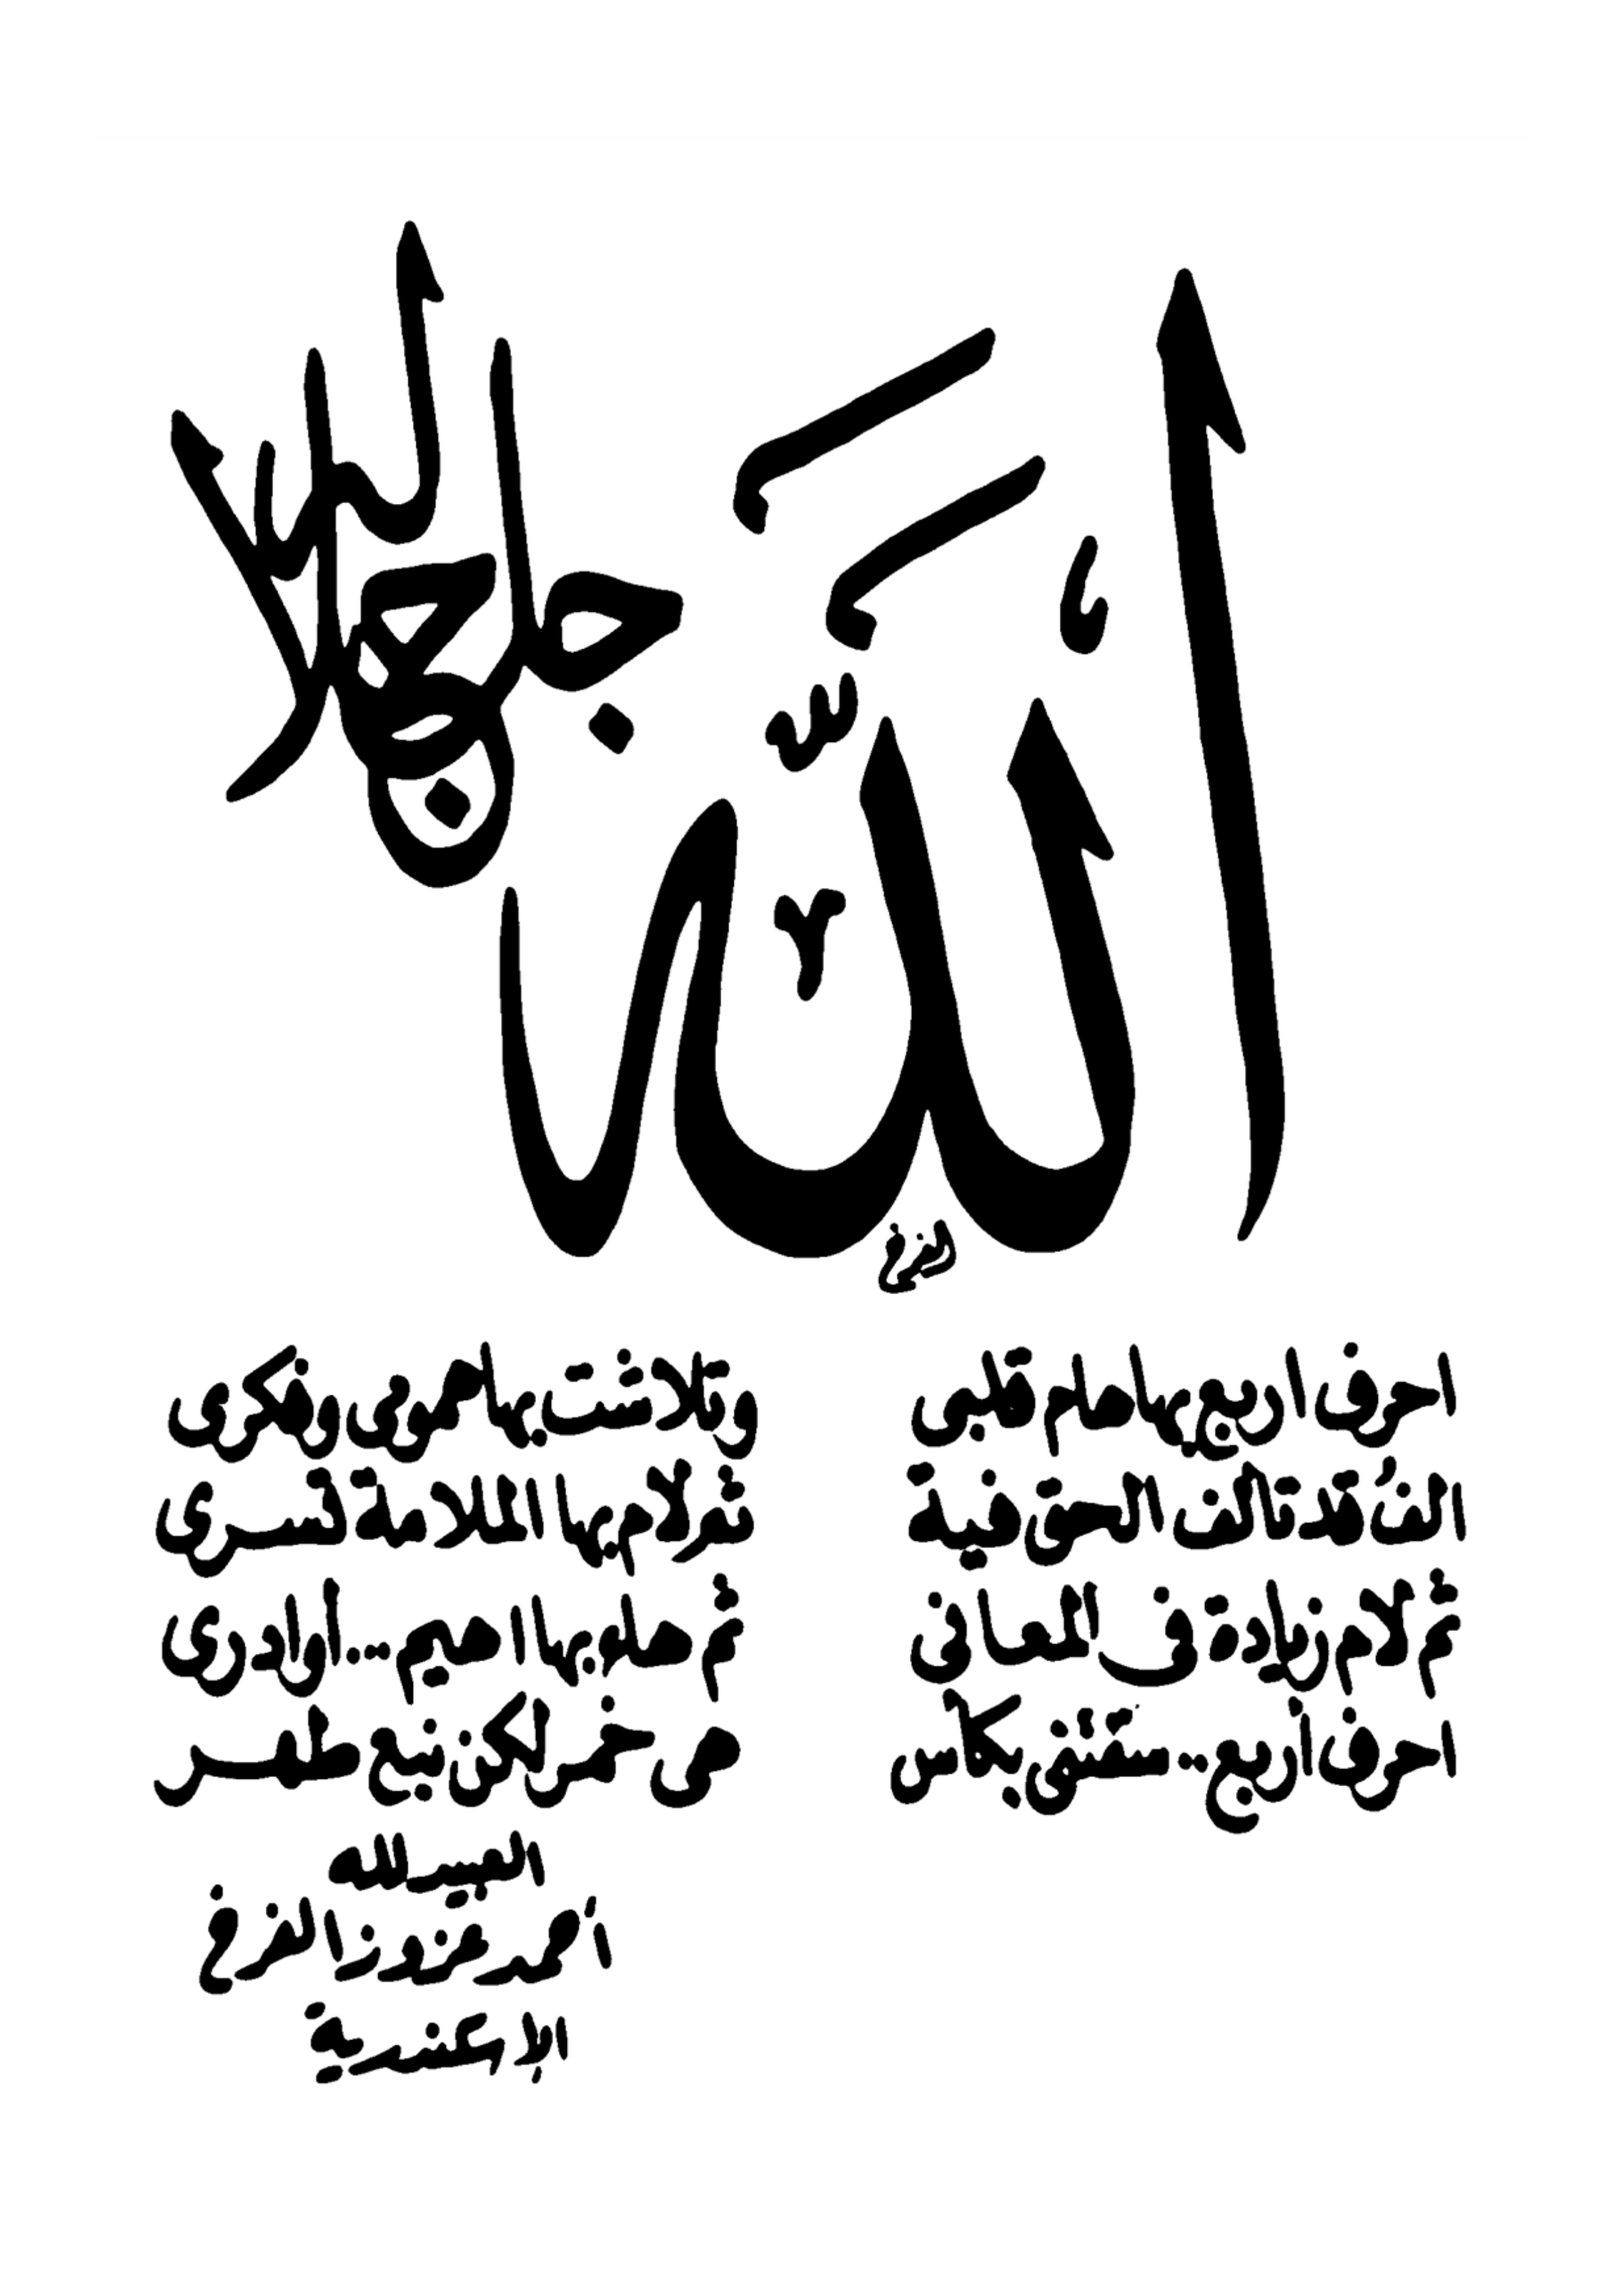 الله
جل جلاله
احرف اربع بها هام قلبى وتلاشت بها همومى وفكرى
الف قد تالف الحق فيه ثم لام بها الملامة تسرى
ثم لام زيادة فى المعانى ثم هاء بها اهيم .. أو ادرى
احرف أربع .. سقتنى بكاس من خمر لكن نبع طهر
العبيد لله
أحمد
الإسكندرية